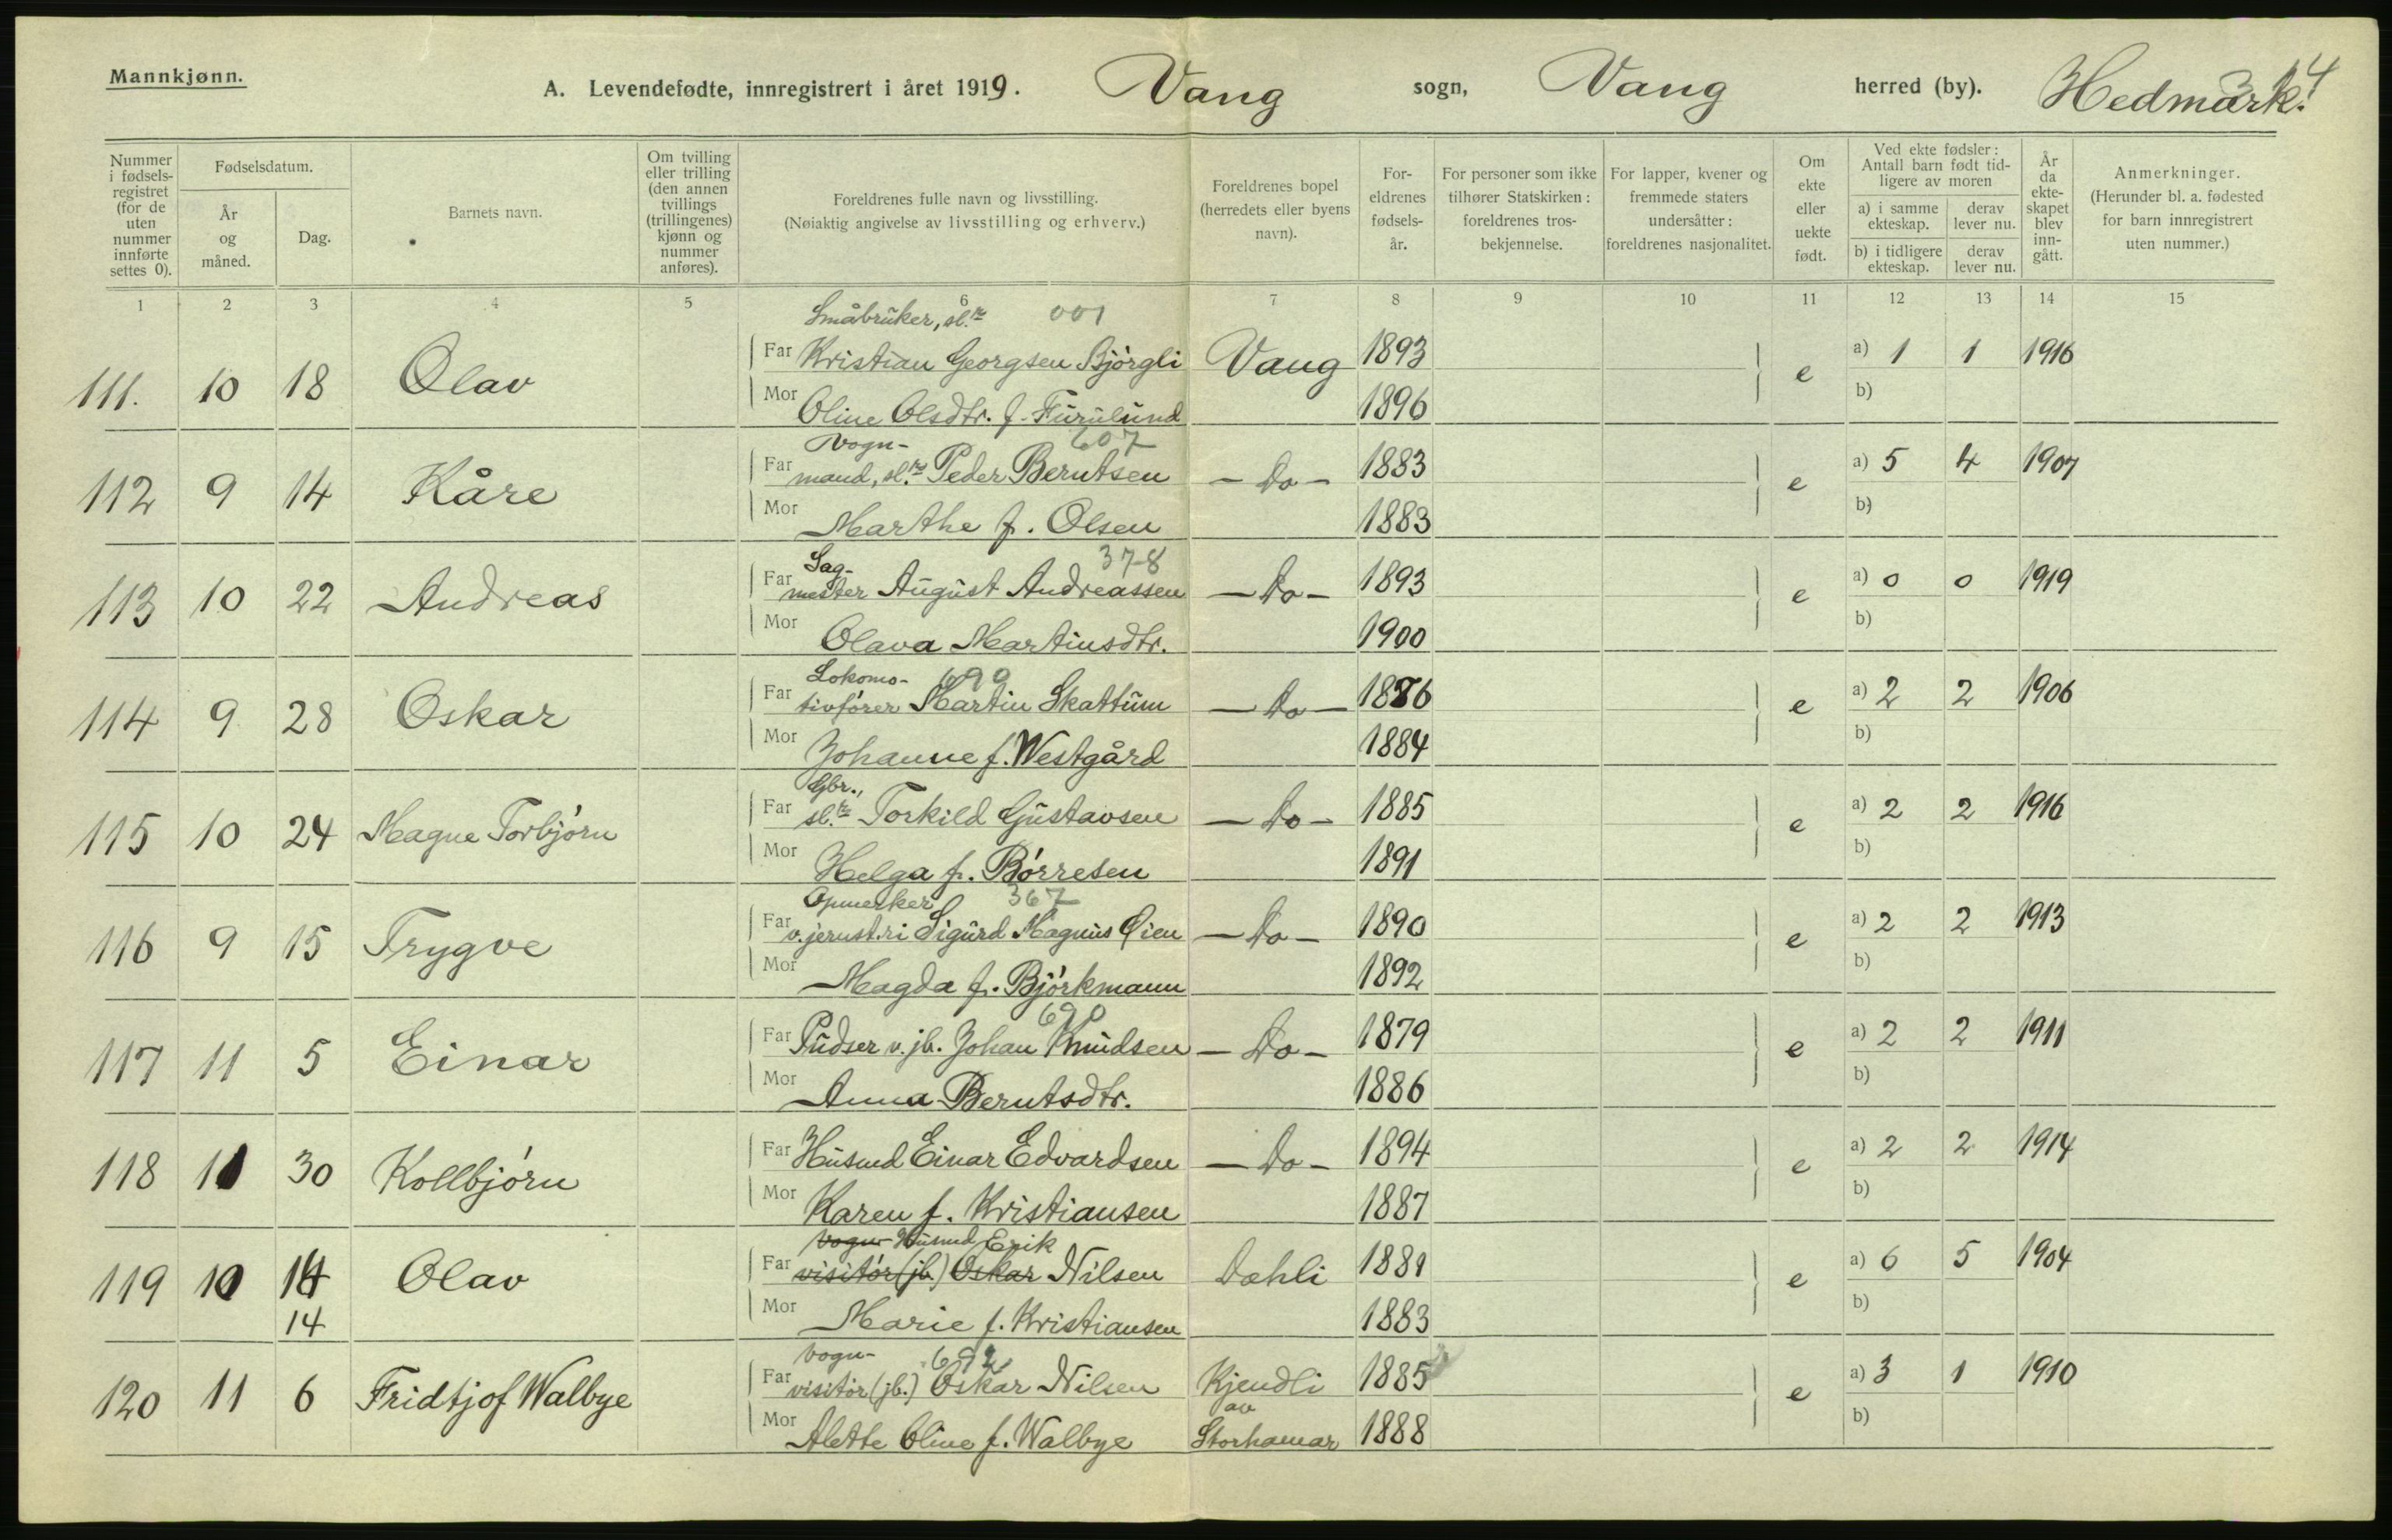 Mannkjønn.
A. Levendefødte, innregistrert i året 1919. Vang sogn, Vang herred (by). Hedmark.
Nummer i fødselsregistret (for de uten nummer innførte settes 0).
Fødselsdatum.
År og måned.
Dag.
Barnets navn.
Om tvilling eller trilling (den annen tvillings (trillingenes) kjønn og nummer anføres).
Foreldrenes fulle navn og livsstilling.
(Nøiaktig angivelse av livsstilling og erhverv.)
Foreldrenes bopel (herredets eller byens navn).
Foreldrenes fødselsår.
For personer som ikke tilhører Statskirken: foreldrenes trosbekjennelse.
For lapper, kvener og fremmede staters undersåtter: foreldrenes nasjonalitet.
Om ekte eller uekte født.
Ved ekte fødsler: Antall barn født tidligere av moren
a) i samme ekteskap.
derav lever nu.
b) i tidligere ekteskap.
derav lever nu.
År da ekteskapet blev inngått.
Anmerkninger.
(Herunder bl. a. fødested for barn innregistrert uten nummer.)
1 2 3 4 5 6 7 8 9 10 11 12 13 14 15
Småbruker, sl.re 001
111. 10 18 Olav Far Kristian Georgsen Bjørgli Vang 1893 e a) 1 1 1916
Mor Oline Olsdtr. f. Furulund 1896 b)
Vogn- 607
112 9 14 Kåre Far mand, sl.re Peder Berntsen - Do - 1883 e a) 5 4 1907
Mor Marthe f. Olsen 1883 b)
Sag- 378
113 10 22 Andreas Far mester August Andreassen - Do - 1893 e a) 0 0 1919
Mor Olava Martinsdtr. 1900 b)
Lokomo- 690
114 9 28 Oskar Far tivfører Martin Skattum - Do - 1886 e a) 2 2 1906
Mor Johanne f. Westgård 1884 b)
Gbr.,
115 10 24 Magne Torbjørn Far sl.re Torkild Gustavsen - Do - 1885 e a) 2 2 1916
Mor Helga f. Børresen 1891 b)
Opmerker 367
116 9 15 Trygve Far v. jernst.ri Sigurd Magnus Øien - Do - 1890 e a) 2 2 1913
Mor Magda f. Bjørkmann 1892 b)
690
117 11 5 Einar Far Pudser v. jb. Johan Knudsen - Do - 1879 e a) 2 2 1911
Mor Anna Berntsdtr. 1886 b)
118 11 30 Kollbjørn Far Husmd Einar Edvardsen - Do - 1894 e a) 2 2 1914
Mor Karen f. Kristiansen 1887 b)
Vogn- Husmd Erik
119 10 14 Olav Far visitør (jb.) Oskar Nilsen Dæhli 1881 e a) 6 5 1904
14 Mor Marie f. Kristiansen 1883 b)
Vogn- 692
120 11 6 Fridtjof Walbye Far visitør (jb.) Oskar Nilsen Kjendli 1885 e a) 3 1 1910
av
Mor Alette Oline f. Walbye Storhamar 1888 b)